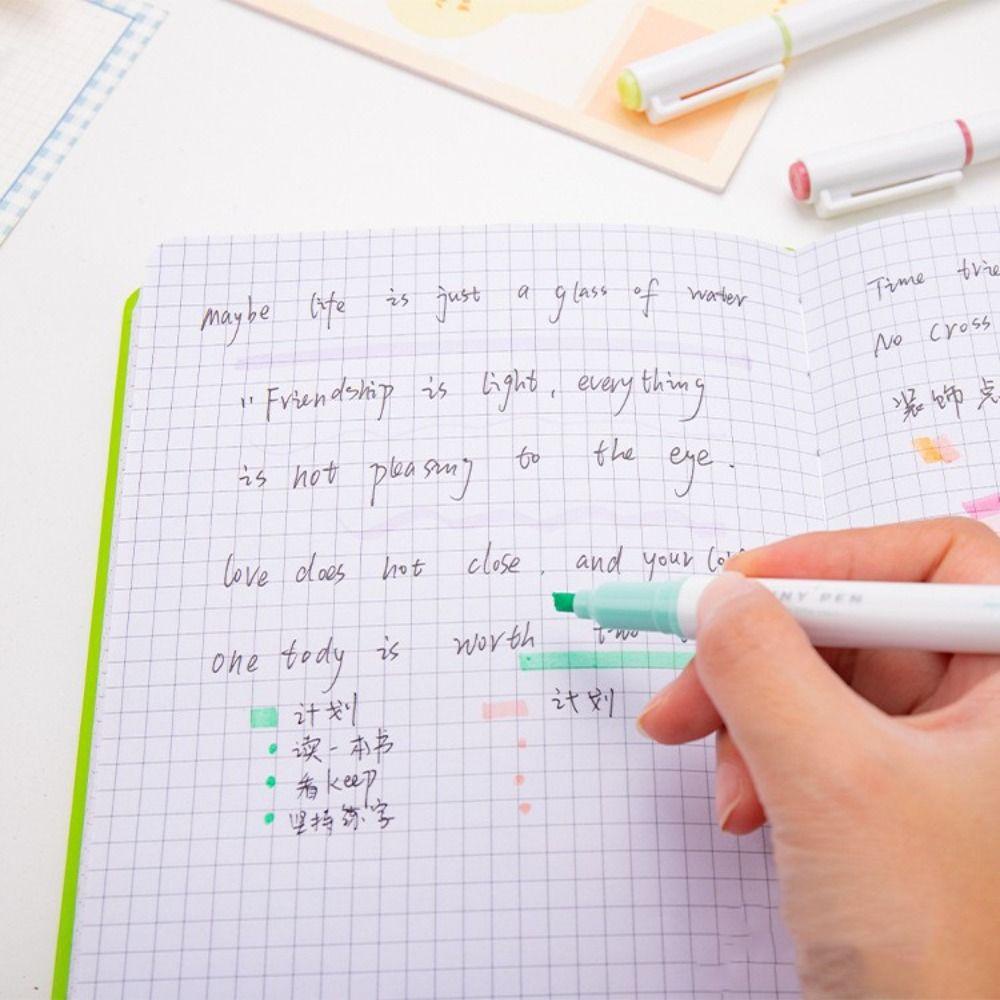 maybe life is just a glass of water
"Friendship is light, everything
is not pleasing to the eye.
love does not close, and your
one tody is worth two
计划
读一本书
看keep
坚持练字
计划
Time
No cross
装饰点
PEN